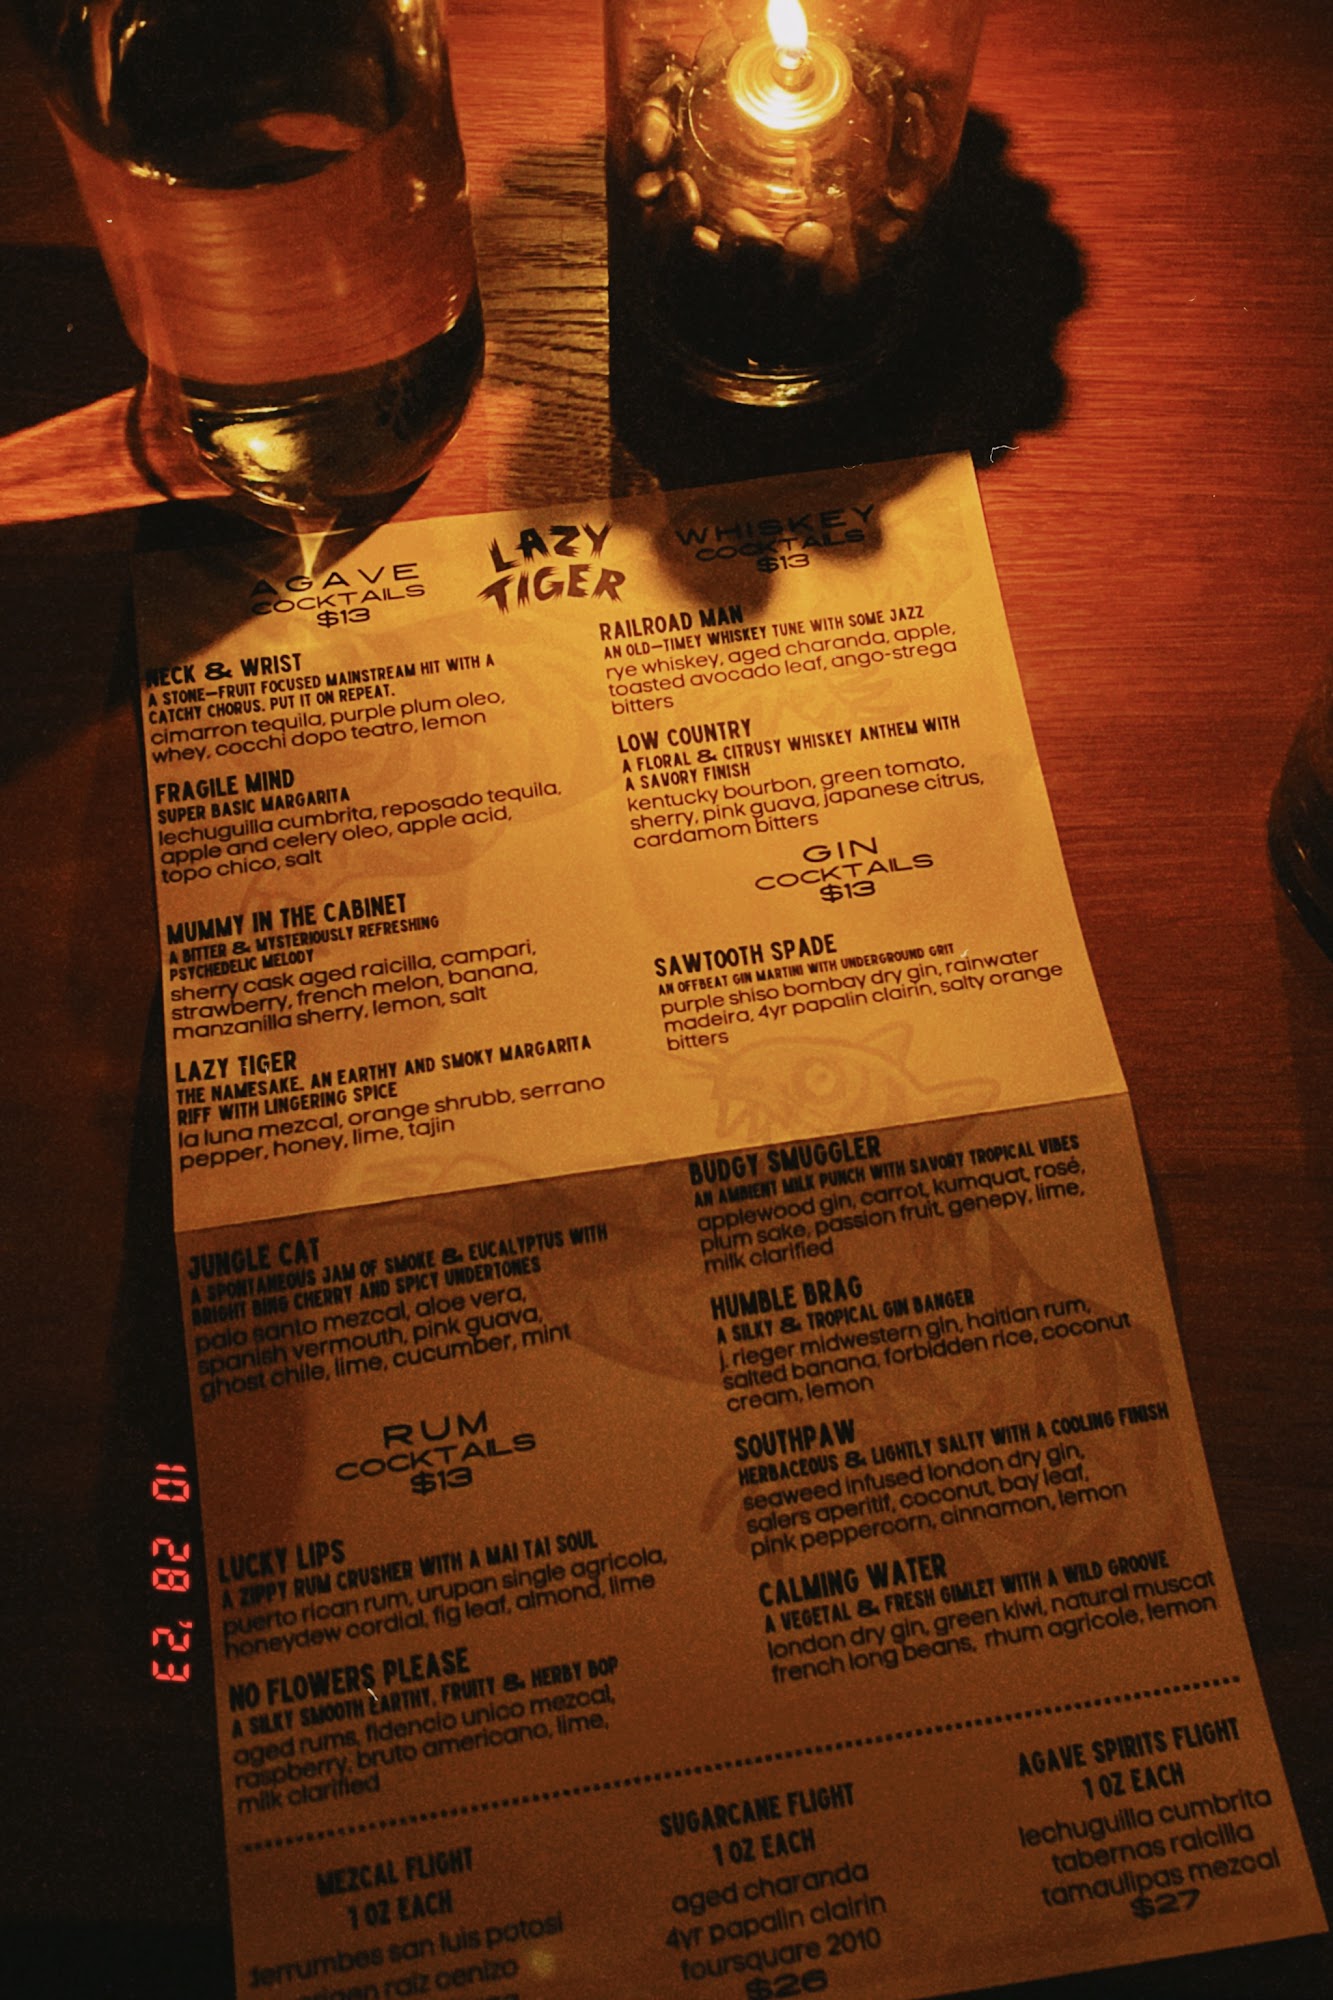 LAZY
TIGER
AGAVE
COCKTAILS
$13
NECK & WRIST
A STONE-FRUIT FOCUSED MAINSTREAM HIT WITH A
CATCHY CHORUS. PUT IT ON REPEAT.
cimarron tequila, purple plum oleo,
whey, cocchi dopo teatro, lemon
FRAGILE MIND
SUPER BASIC MARGARITA
lechuguilla cumbrita, reposado tequila,
apple and celery oleo, apple acid,
topo chico, salt
MUMMY IN THE CABINET
A BITTER & MYSTERIOUSLY REFRESHING
PSYCHEDELIC MELODY
sherry cask aged raicilla, campari,
strawberry, french melon, banana,
manzanilla sherry, lemon, salt
LAZY TIGER
THE NAMESAKE. AN EARTHY AND SMOKY MARGARITA
RIFF WITH LINGERING SPICE
la luna mezcal, orange shrubb, serrano
pepper, honey, lime, tajin
JUNGLE CAT
A SPONTANEOUS JAM OF SMOKE & EUCALYPTUS WITH
BRIGHT BING CHERRY AND SPICY UNDERTONES
palo santo mezcal, aloe vera,
spanish vermouth, pink guava,
ghost chile, lime, cucumber, mint
RUM
COCKTAILS
$13
LUCKY LIPS
A ZIPPY RUM CRUSHER WITH A MAI TAI SOUL
puerto rican rum, urupan single agricola,
honeydew cordial, fig leaf, almond, lime
NO FLOWERS PLEASE
A SILKY SMOOTH EARTHY, FRUITY & HERBY BOP
aged rums, fidencio unico mezcal,
raspberry, bruto americano, lime,
milk clarified
WHISKEY
COCKTAILS
$13
RAILROAD MAN
AN OLD-TIMEY WHISKEY TUNE WITH SOME JAZZ
rye whiskey, aged charanda, apple,
toasted avocado leaf, ango-strega
bitters
LOW COUNTRY
A FLORAL & CITRUSY WHISKEY ANTHEM WITH
A SAVORY FINISH
kentucky bourbon, green tomato,
sherry, pink guava, japanese citrus,
cardamom bitters
GIN
COCKTAILS
$13
SAWTOOTH SPADE
AN OFFBEAT GIN MARTINI WITH UNDERGROUND GRIT
purple shiso bombay dry gin, rainwater
madeira, 4yr papalin clairin, salty orange
bitters
BUDGY SMUGGLER
AN AMBIENT MILK PUNCH WITH SAVORY TROPICAL VIBES
applewood gin, carrot, kumquat, rosé,
plum sake, passion fruit, genepy, lime,
milk clarified
HUMBLE BRAG
A SILKY & TROPICAL GIN BANGER
j. rieger midwestern gin, haitian rum,
salted banana, forbidden rice, coconut
cream, lemon
SOUTHPAW
HERBACEOUS & LIGHTLY SALTY WITH A COOLING FINISH
seaweed infused london dry gin,
salers aperitif, coconut, bay leaf,
pink peppercorn, cinnamon, lemon
CALMING WATER
A VEGETAL & FRESH GIMLET WITH A WILD GROOVE
london dry gin, green kiwi, natural muscat
french long beans, rhum agricole, lemon
MEZCAL FLIGHT
1 OZ EACH
derrumbes san luis potosi
raiz cenizo
SUGARCANE FLIGHT
1 OZ EACH
aged charanda
4yr papalin clairin
foursquare 2010
$26
AGAVE SPIRITS FLIGHT
1 OZ EACH
lechuguilla cumbrita
tabernas raicilla
tamaulipas mezcal
$27
10 28 '23